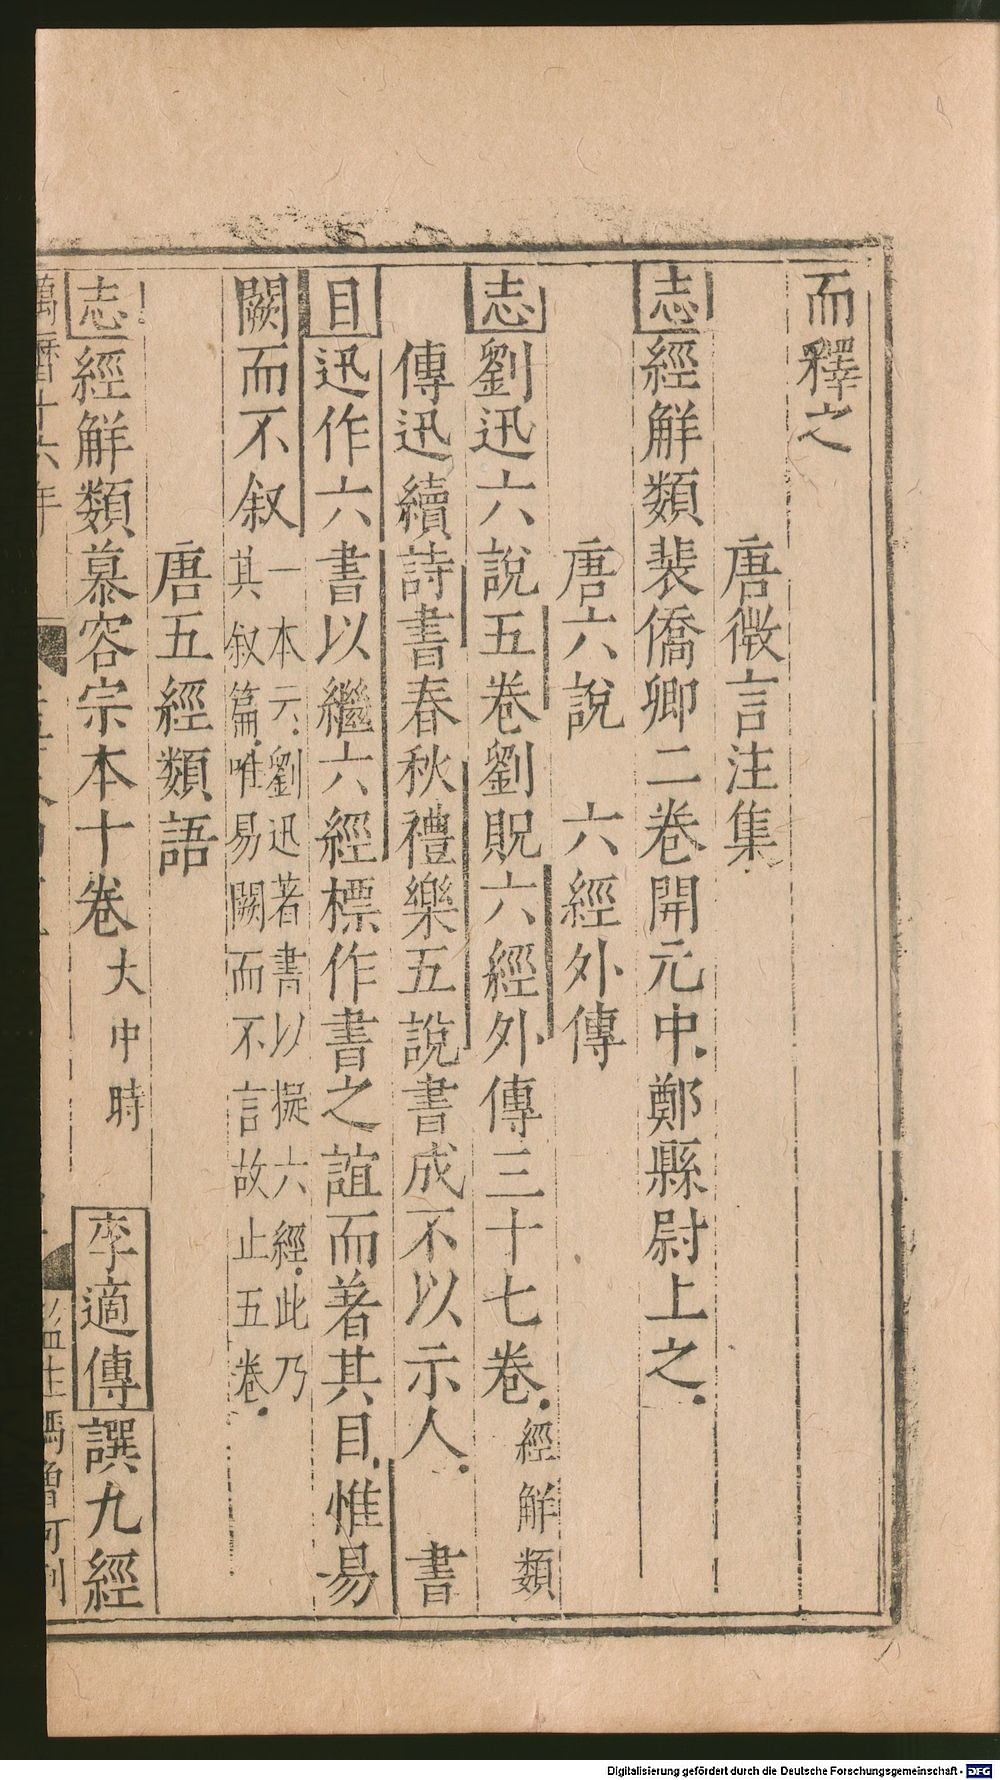 而釋之
唐微言注集
志經解類裴僑卿二卷開元中鄭縣尉上之
唐六說　六經外傳
志劉迅六說五卷劉貺六經外傳三十七卷經解類
傳迅續詩書春秋禮樂五說書成不以示人　書
目迅作六書以繼六經標作書之誼而著其目惟易
闕而不叙一本云劉迅著書以擬六經此乃
其叙篇唯易闕而不言故止五卷
唐五經類語
志經解類慕容宗本十卷大中時　李適傳譔九經
萬曆十六年
監生馮曾可刊
Digitalisierung gefördert durch die Deutsche Forschungsgemeinschaft - DFG